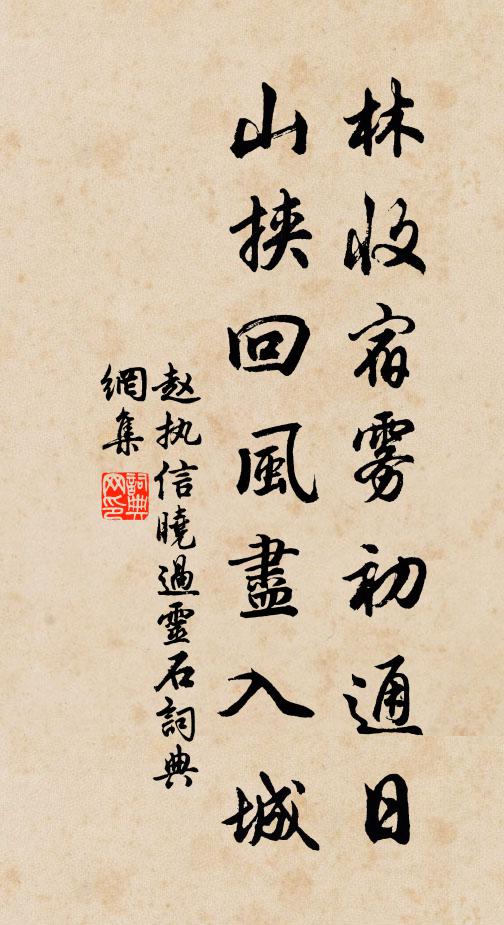 林收宿雾初通日
山挾回風盡入城
赵执信曉過靈石詞典
網集
詞典网印